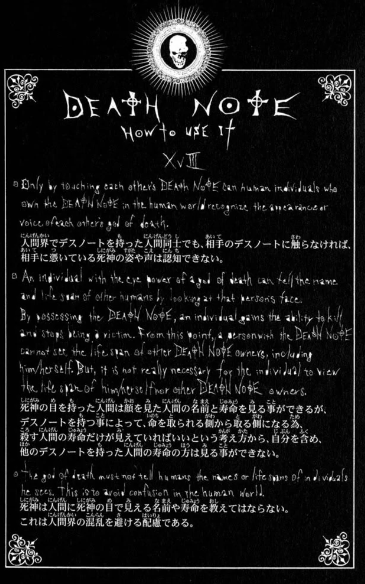 DEATH NOTE
How to use it
XVIII
Only by touching each other's DEATH NOTE can human individuals who
own the DEATH NOTE in the human world recognize the appearance or
voice of each other's god of death.
人間界でデスノートを持った人間同士でも、相手のデスノートに触らなければ、
相手に憑いている死神の姿や声は認知できない。
An individual with the eye power of a god of death can tell the name
and life span of other humans by looking at that person's face.
By possessing the DEATH NOTE, an individual gains the ability to kill
and stops being a victim. From this point, a person with the DEATH NOTE
cannot see the life span of other DEATH NOTE owners, including
him/herself. But, it is not really necessary for the individual to view
the life span of him/herself nor other DEATH NOTE owners.
死神の目を持った人間は顔を見た人間の名前と寿命を見る事ができるが、
デスノートを持つ事によって、命を取られる側から取る側になる為、
殺す人間の寿命だけが見えていればいいという考え方から、自分を含め、
他のデスノートを持った人間の寿命の方は見る事ができない。
The god of death must not tell humans the names or life spans of individuals
he sees. This is to avoid confusion in the human world.
死神は人間に死神の目で見える名前や寿命を教えてはならない。
これは人間界の混乱を避ける配慮である。